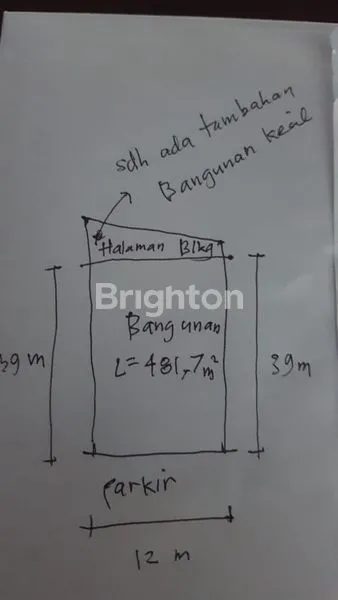 sdh ada tambahan
Bangunan kecil
Halaman Blkg
Brighton
Bangunan
L = 481,7 m²
39 m
39 m
parkir
12 m